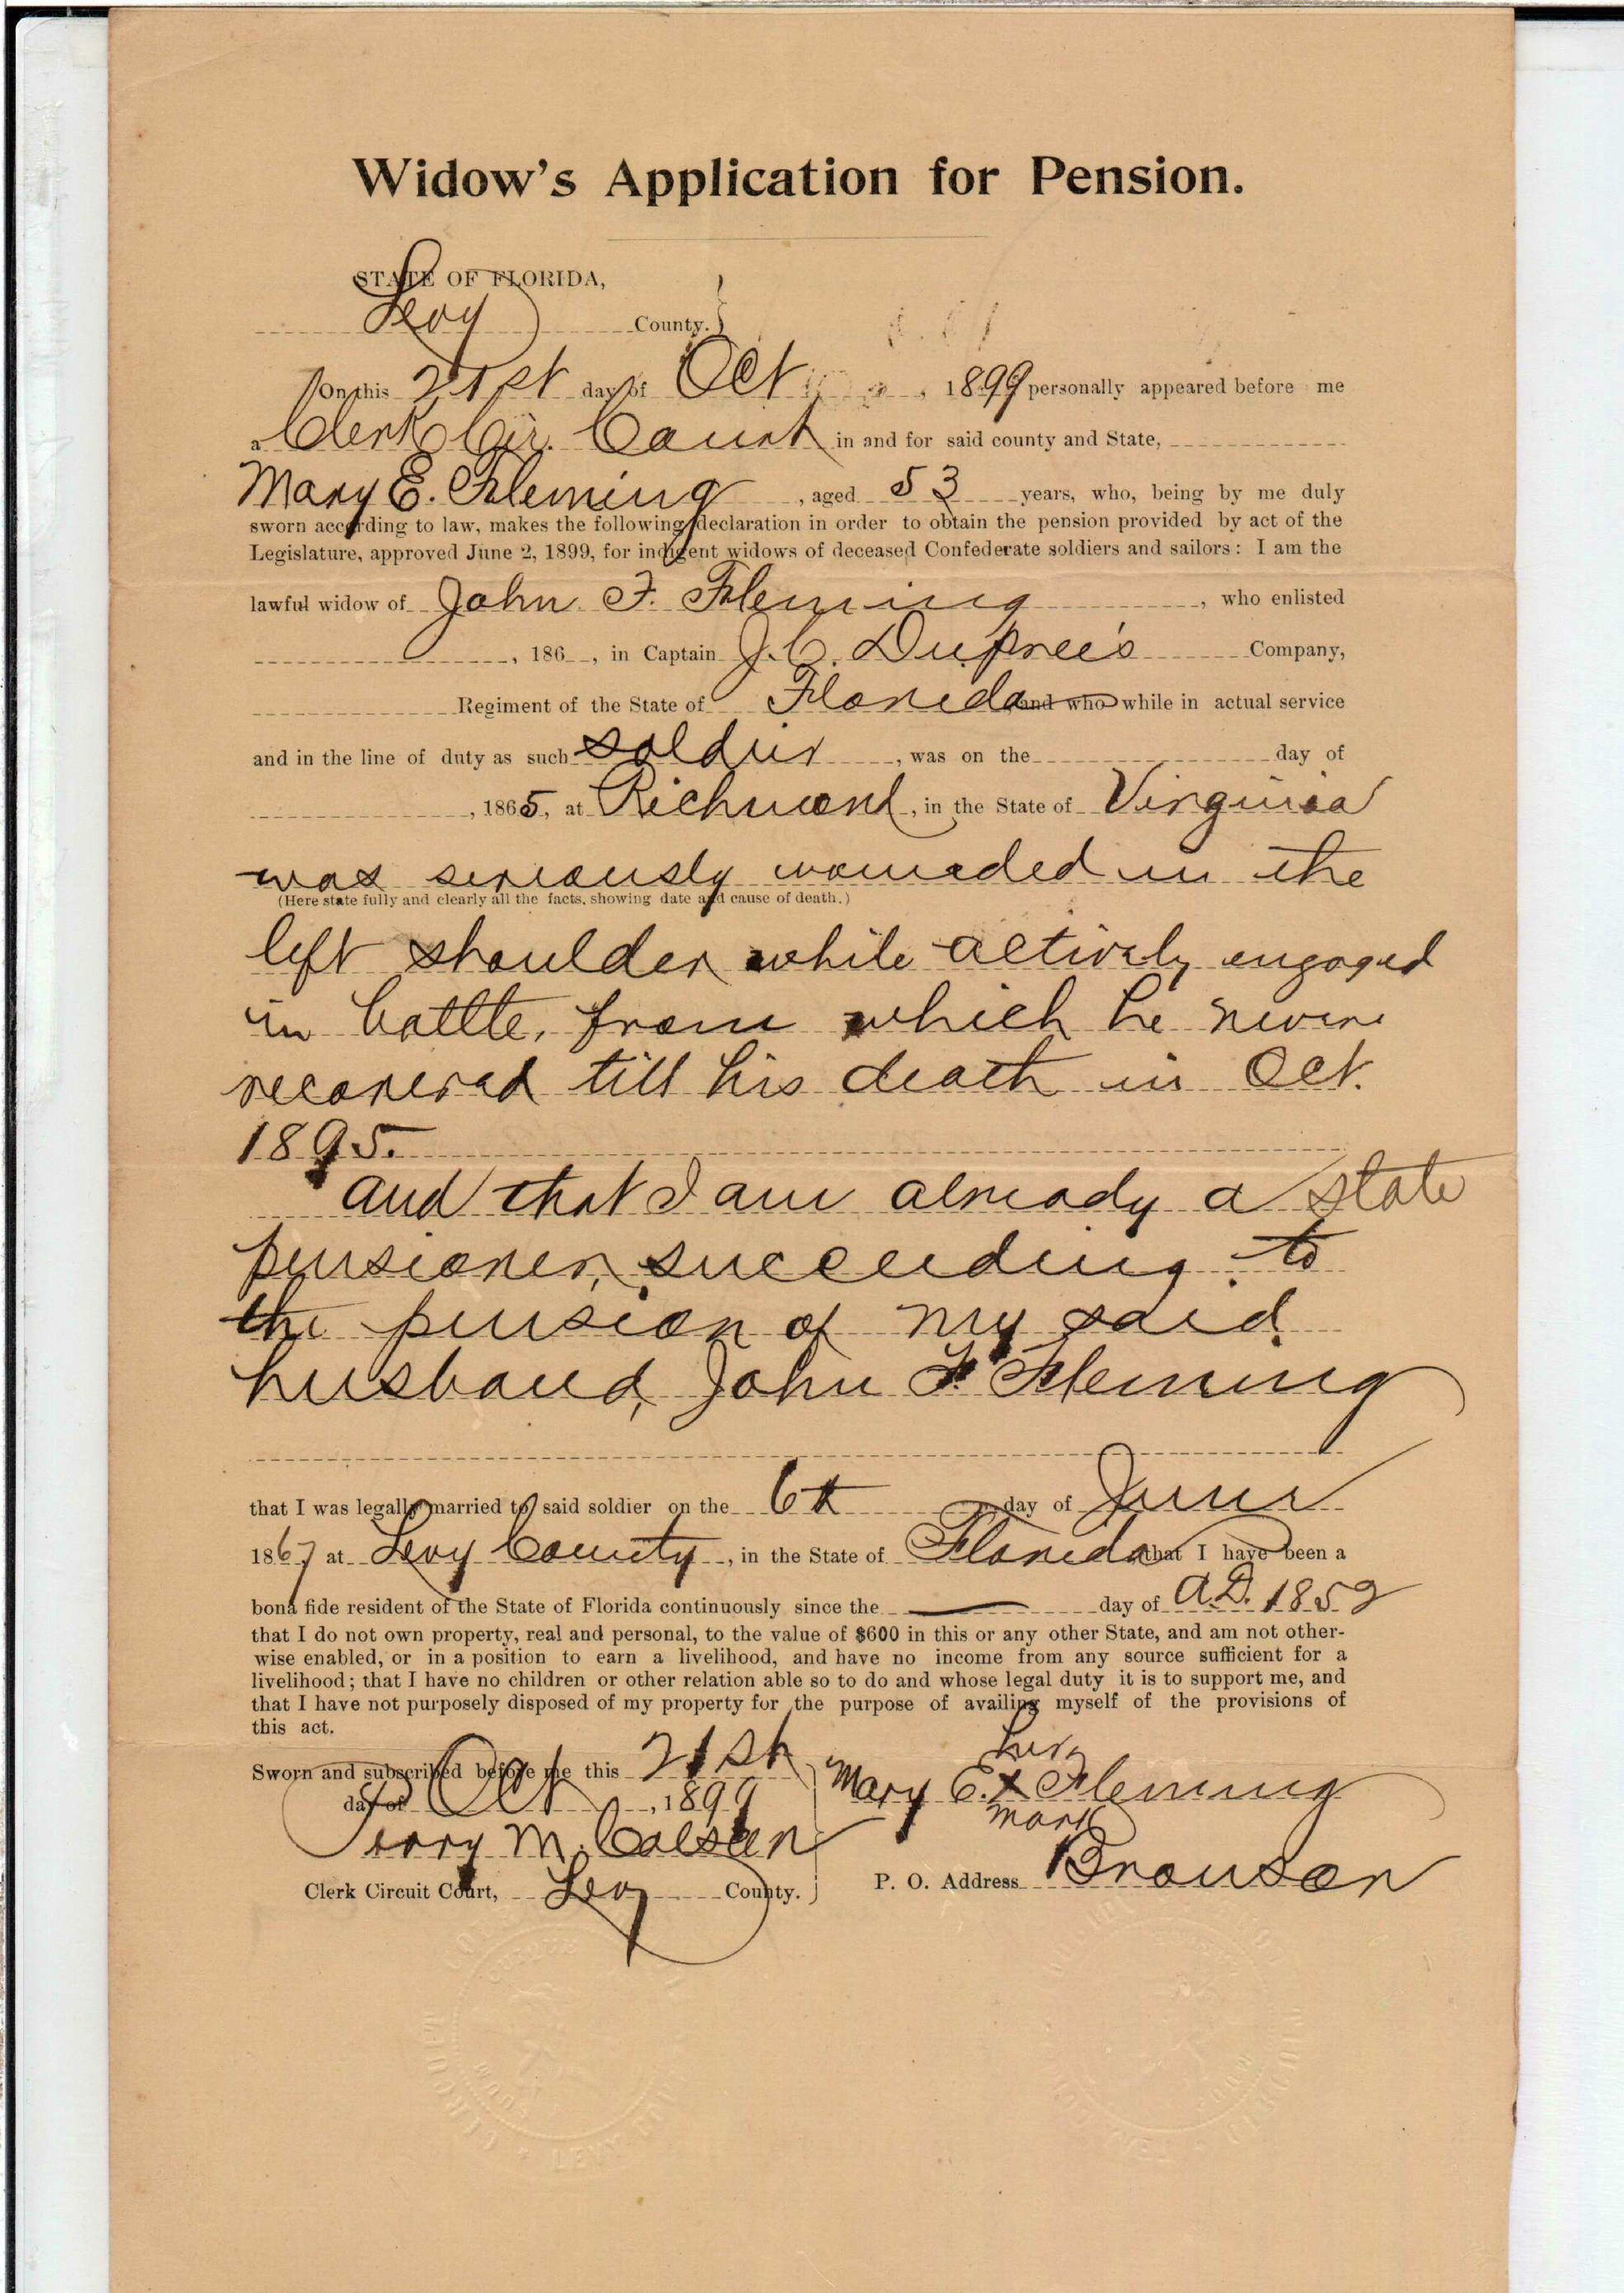 Widow's Application for Pension.
STATE OF FLORIDA,
Levy County.
On this 21st day of Oct, 1899 personally appeared before me
a Clerk Cir. Court in and for said county and State,
Mary E. Fleming, aged 53 years, who, being by me duly
sworn according to law, makes the following declaration in order to obtain the pension provided by act of the
Legislature, approved June 2, 1899, for indigent widows of deceased Confederate soldiers and sailors: I am the
lawful widow of John F. Fleming, who enlisted
, 186 , in Captain J. C. DuPree's Company,
Regiment of the State of Florida and who while in actual service
and in the line of duty as such soldier, was on the day of
, 1865, at Richmond, in the State of Virginia
was seriously wounded in the
(Here state fully and clearly all the facts, showing date and cause of death.)
left shoulder while actively engaged
in battle, from which he never
recovered till his death in Oct.
1895.
and that I am already a state
pensioner, succeeding to
the pension of my said
husband, John F. Fleming
that I was legally married to said soldier on the 6th day of June
1867 at Levy County, in the State of Florida that I have been a
bona fide resident of the State of Florida continuously since the — day of A.D. 1852
that I do not own property, real and personal, to the value of $600 in this or any other State, and am not other-
wise enabled, or in a position to earn a livelihood, and have no income from any source sufficient for a
livelihood; that I have no children or other relation able so to do and whose legal duty it is to support me, and
that I have not purposely disposed of my property for the purpose of availing myself of the provisions of
this act.
Sworn and subscribed before me this 21st
day of Oct, 1899
M.
Clerk Circuit Court, Levy County.
her
Mary E. x Fleming
mark
P. O. Address Bronson